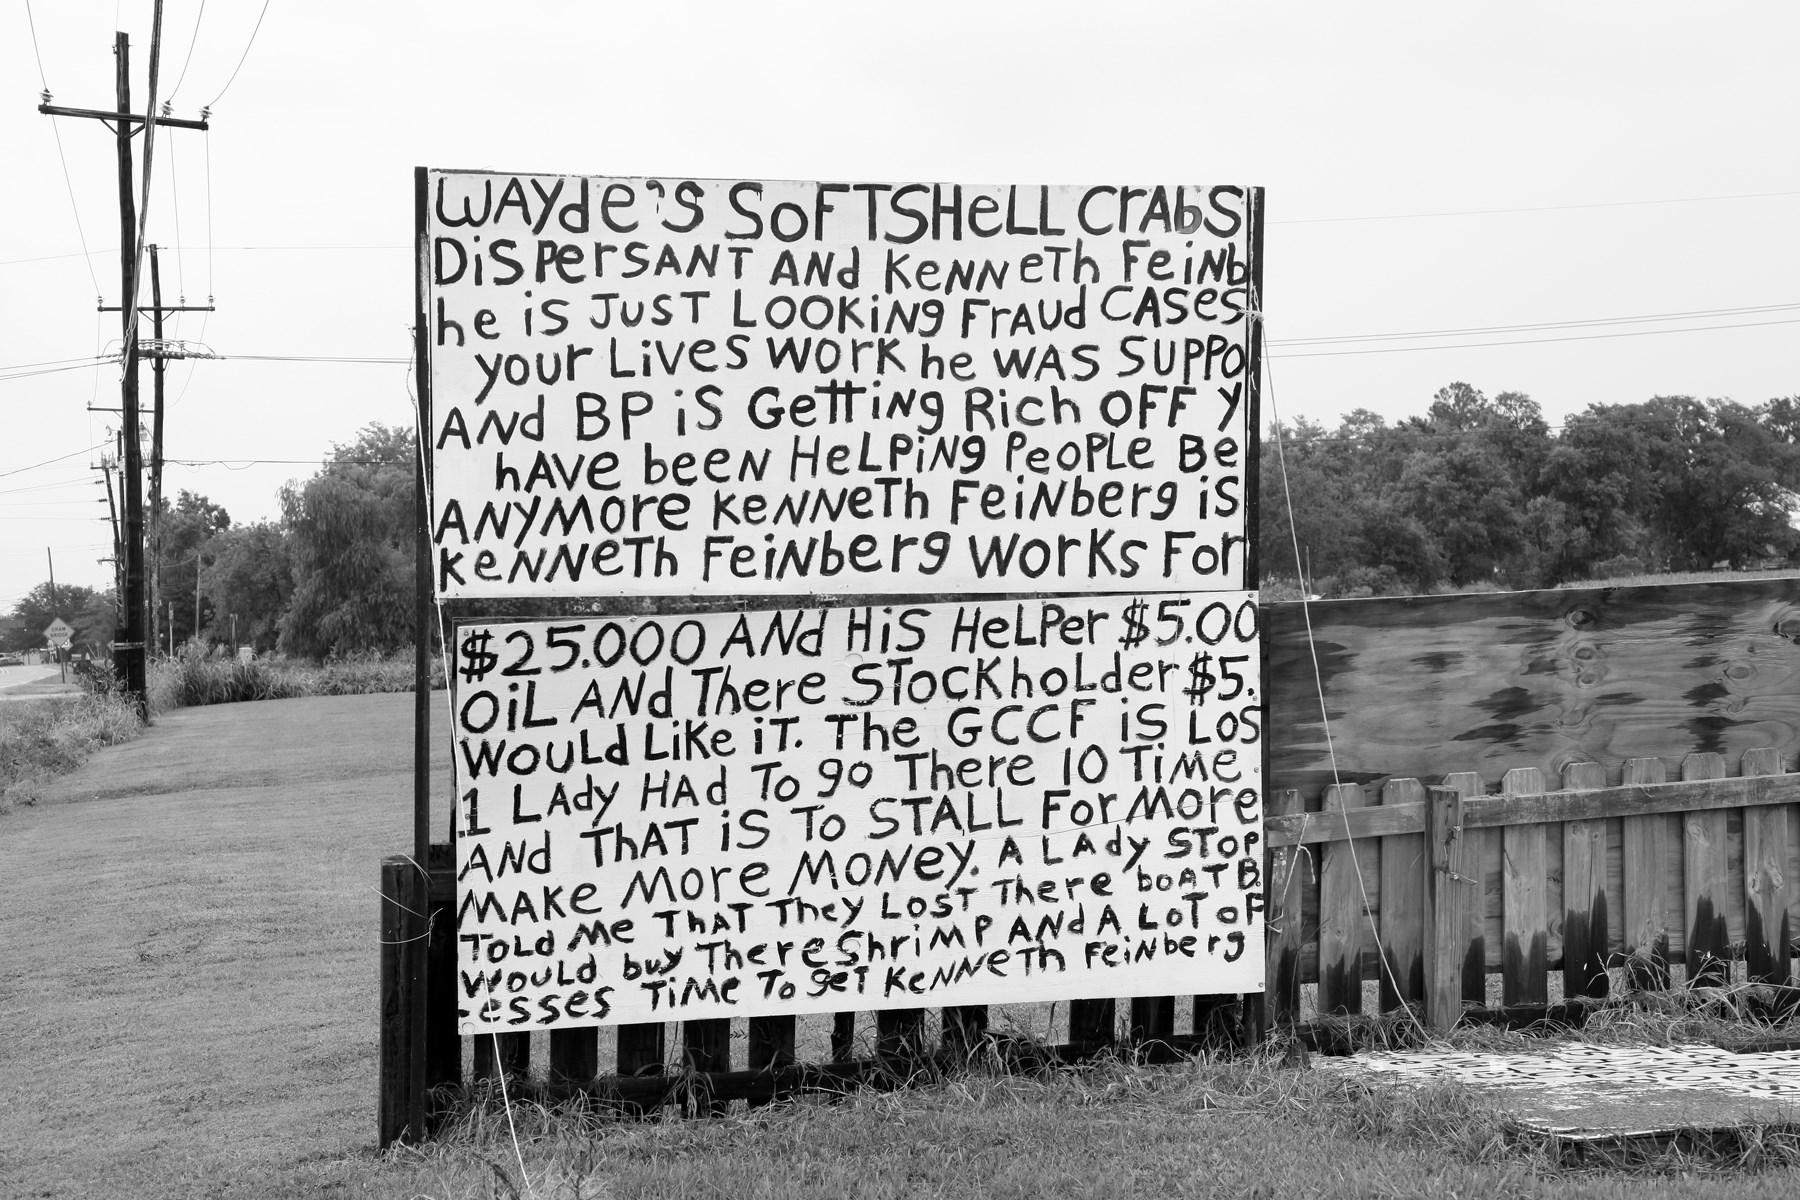 WAYde's SoFTSHeLL CrAbS
DiSPerSANT ANd KeNNeTh FeiNb
he iS JUST LOOKiNg FrAud CASeS
your LiveS WOrK he WAS SUPPO
ANd BP iS GeTTiNg Rich OFF y
hAve beeN HeLPiNg PeoPLe Be
ANyMOre KeNNeTh FeiNberg iS
KeNNeTh FeiNberg WOrKs For
$25.000 ANd HiS HeLPer $5.00
OiL ANd There STocKhoLder $5.
WOULd LiKe iT. The GCCF iS LOS
1 LAdy HAd To go There 10 TiMe
ANd ThAT iS To STALL For More
MAKe More MoNey. A LAdy SToP
ToLd Me ThAT They LosT There boAT B
WouLd buy There ShriMP ANd A LoT oF
-esses TiMe To geT KeNNeTh FeiNberg